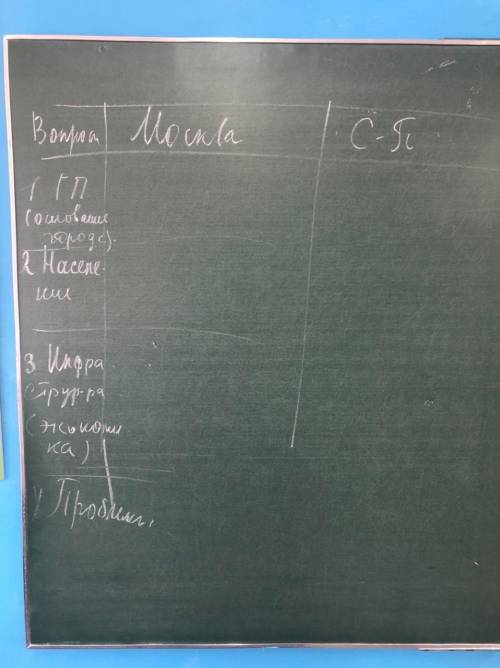 Вопросы Москва С-П
1 ГП
(основание
города).
2 Населе-
ние
3 Инфра
струк-ра
(экономи
ка)
4 Проблемы